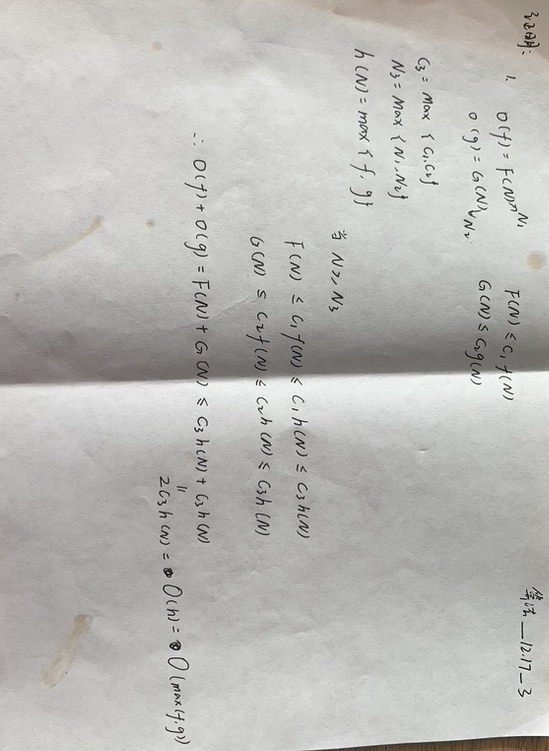 证明:
算法_12.17_3
1. O(f) = F(N) N1 F(N) ≤ C1 f(N)
O(g) = G(N) N2 G(N) ≤ C2 g(N)
C3 = max {C1, C2}
N3 = max {N1, N2}
h(N) = max {f, g}
当 N ≥ N3
F(N) ≤ C1 f(N) ≤ C1 h(N) ≤ C3 h(N)
G(N) ≤ C2 f(N) ≤ C2 h(N) ≤ C3 h(N)
∴ O(f) + O(g) = F(N) + G(N) ≤ C3 h(N) + C3 h(N)
=
2C3 h(N) = O(h) = O(max(f, g))